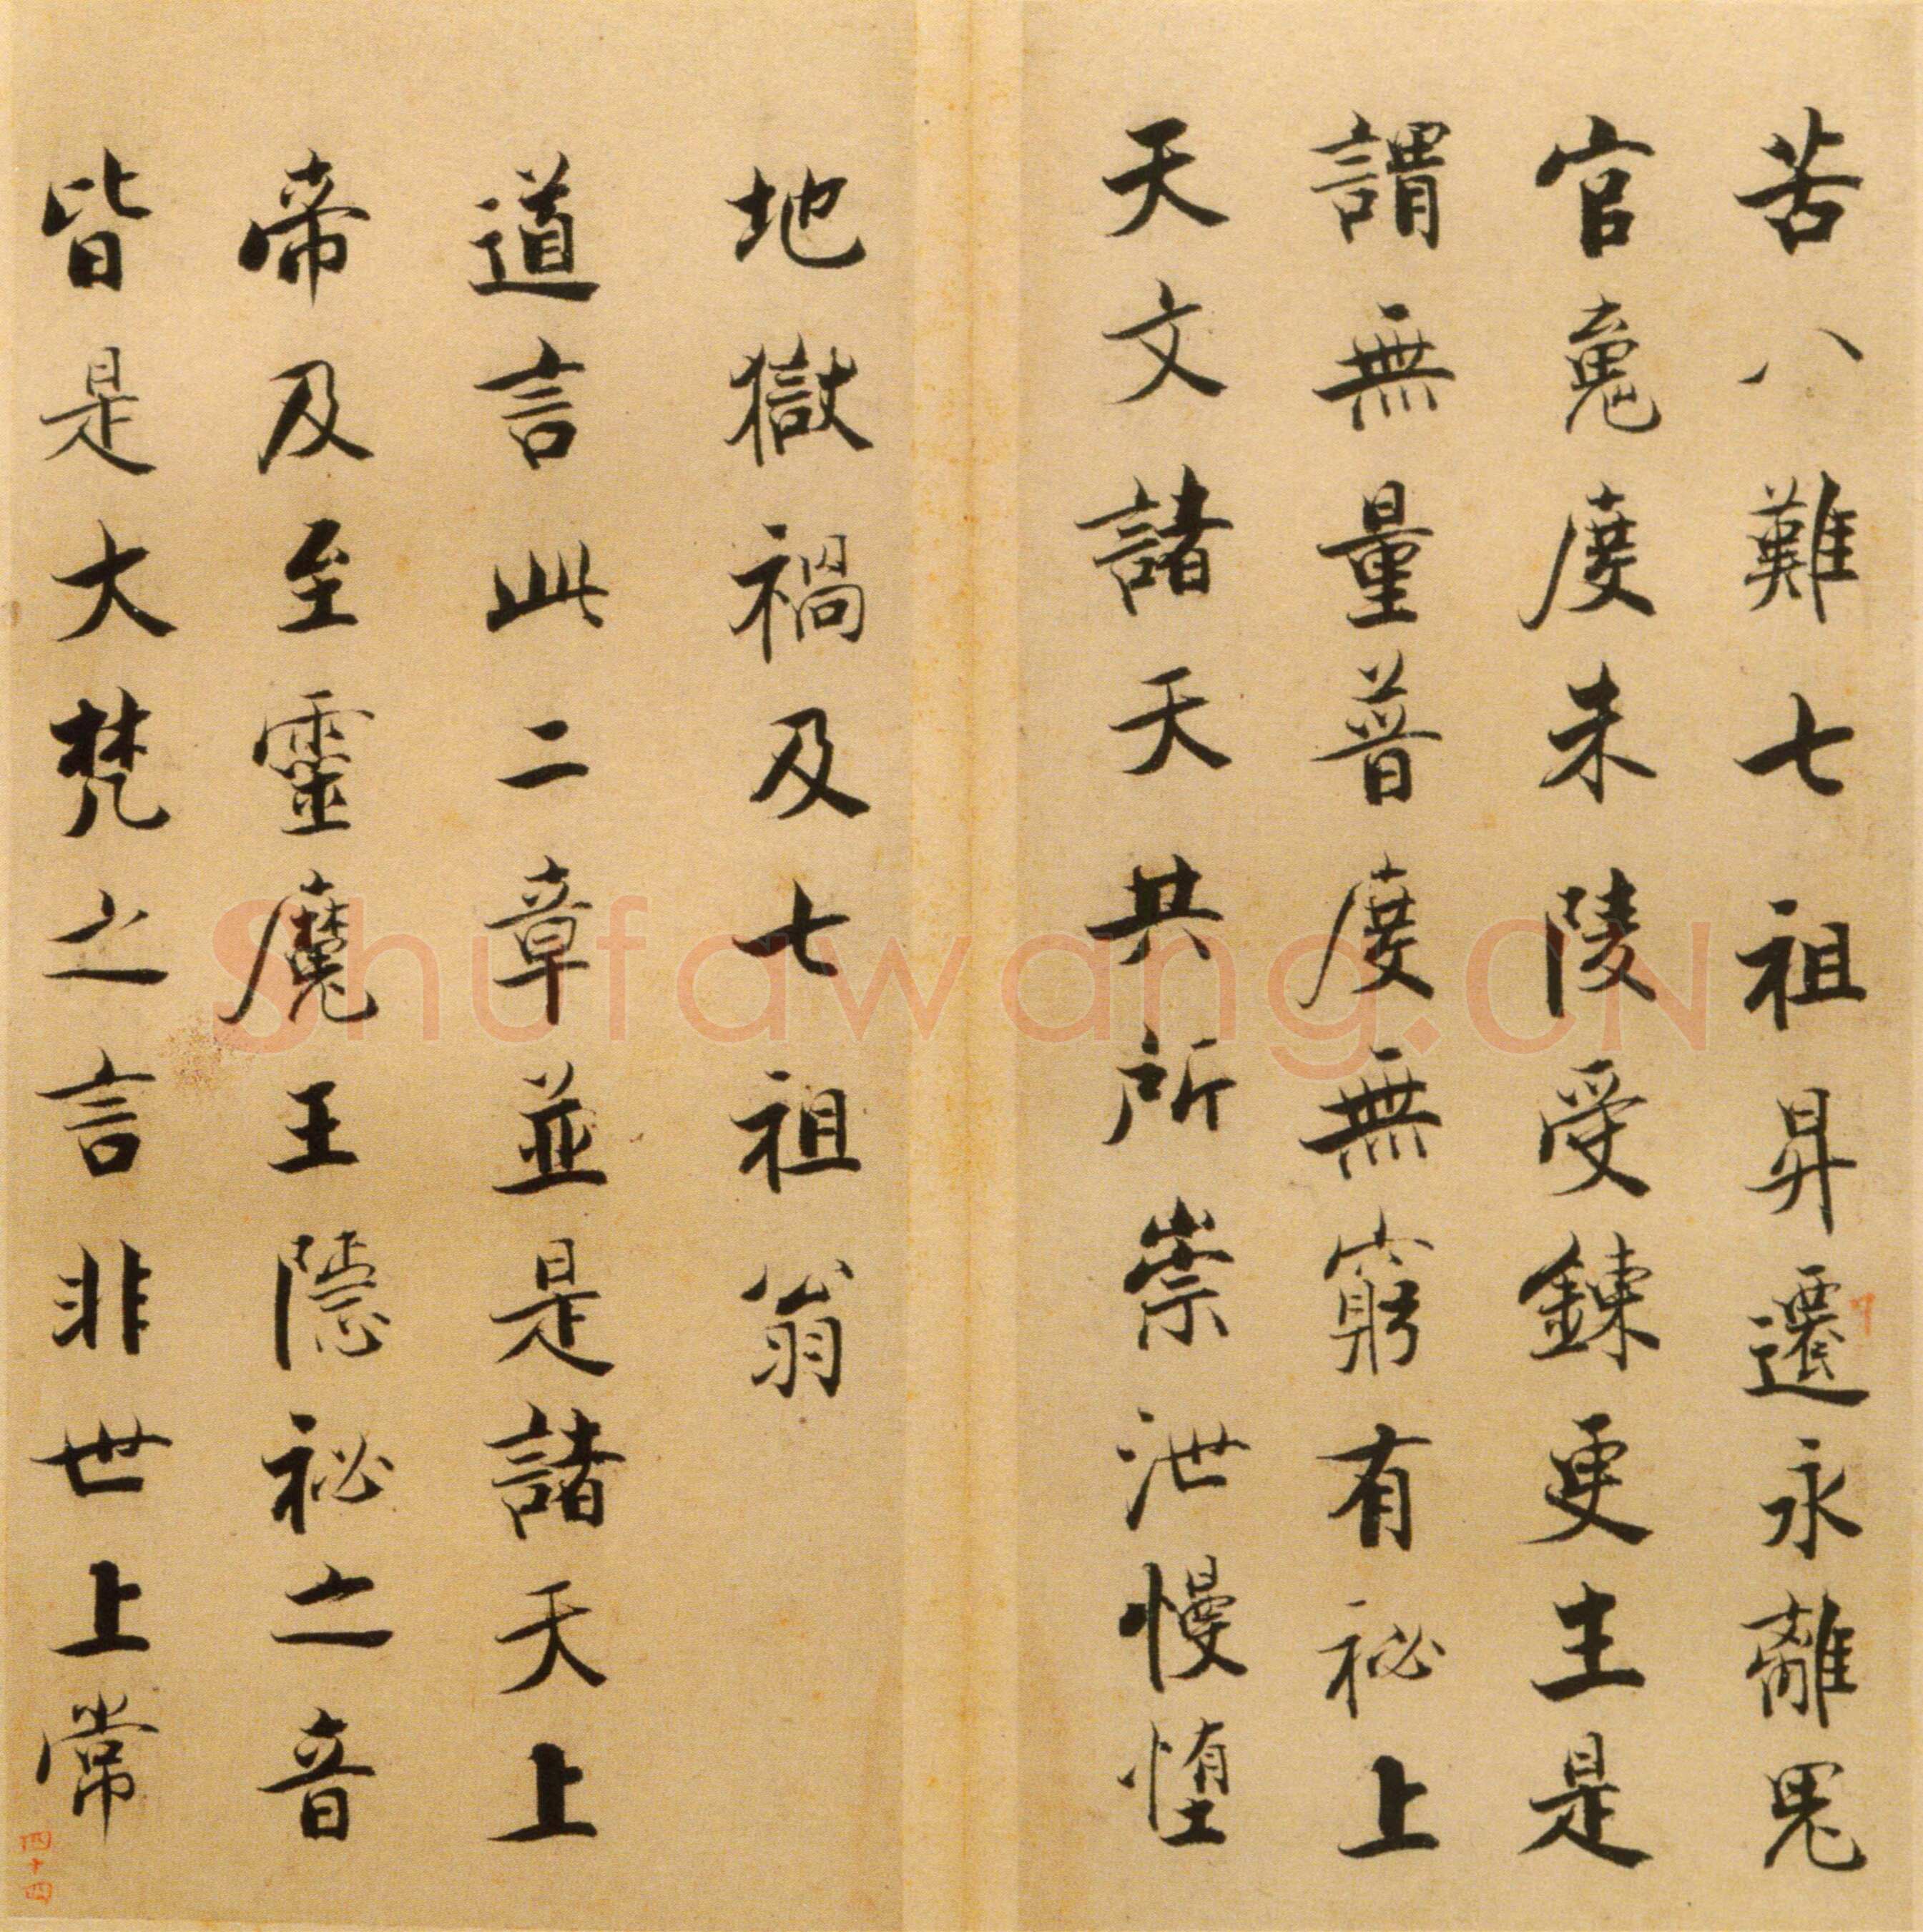 苦八難七祖昇遷永離鬼
官魂度朱陵受鍊更生是
謂無量普度無窮有祕上
天文諸天共所崇泄慢墮
地獄禍及七祖翁
道言此二章並是諸天上
帝及至靈魔王隱祕之音
皆是大梵之言非世上常
四十四
Shufawang.CN